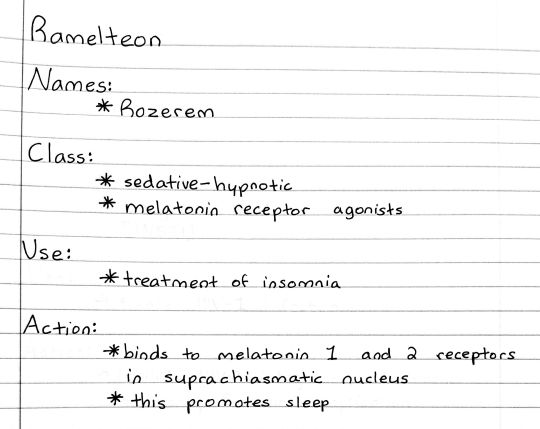 Ramelteon
Names:
* Rozerem
Class:
* sedative-hypnotic
* melatonin receptor agonists
Use:
* treatment of insomnia
Action:
* binds to melatonin 1 and 2 receptors
in suprachiasmatic nucleus
* this promotes sleep